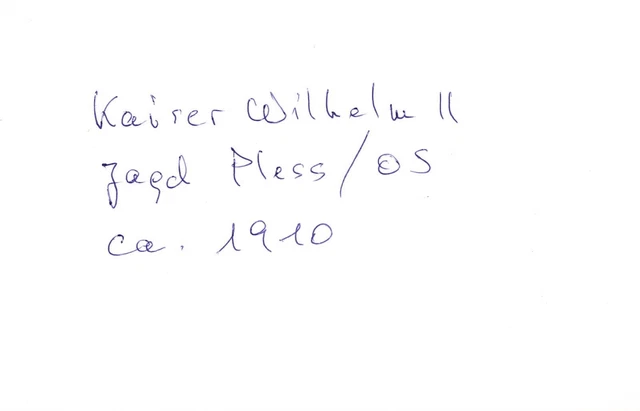 Kaiser Wilhelm II
Jagd Pless/OS
ca. 1910